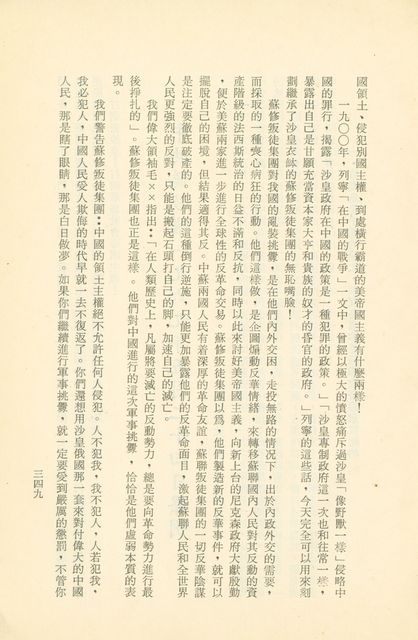 國領土、侵犯別國主權、到處橫行霸道的美帝國主義有什麼兩樣！
一九〇〇年，列寧「在中國的戰爭」一文中，曾經以極大的憤怒痛斥過沙皇「像野獸一樣」侵略中
國的罪行，揭露「沙皇政府在中國的政策是一種犯罪的政策。」「沙皇專制政府這一次也和往常一樣，
暴露出自己是甘願充當資本家大亨和貴族的奴才的昏官的政府。」列寧的這些話，今天完全可以用來刻
劃繼承了沙皇衣缽的蘇修叛徒集團的無恥嘴臉！
蘇修叛徒集團對我國的亂裝挑釁，是在他們內外交困，走投無路的情況下，出於內政外交的需要，
而採取的一種喪心病狂的行動。他們這樣做，是企圖煽動反華情緒，來轉移蘇聯國內人民對其反動的資
產階級的法西斯統治的日益不滿和反抗，同時以此來討好美帝國主義，向新上台的尼克森政府大獻殷勤
，便於美蘇兩家進一步進行全球性的反革命交易。蘇修叛徒集團以爲，他們製造新的反華事件，就可以
擺脫自己的困境，但結果適得其反。中蘇兩國人民有着深厚的革命友誼，蘇聯叛徒集團的一切反華陰謀
是注定要徹底破產的。他們的這種倒行逆施，只能更加暴露他們的反革命面目，激起蘇聯人民和全世界
人民更強烈的反對，只能是搬起石頭打自己的脚，加速自己的滅亡。
我們偉大領袖毛××指出：「在人類歷史上，凡屬將要滅亡的反動勢力，總是要向革命勢力進行最
後掙扎的」。蘇修叛徒集團也正是這樣。他們對中國進行的這次軍事挑釁，恰恰是他們虛弱本質的表
現。
我們警告蘇修叛徒集團：中國的領土主權絕不允許任何人侵犯。人不犯我，我不犯人，人若犯我，
我必犯人，中國人民受人欺侮的時代早就一去不復返了。你們還想用沙皇俄國那一套來對付偉大的中國
人民，那是瞎了眼睛，那是白日做夢。如果你們繼續進行軍事挑釁，就一定要受到嚴厲的懲罰，不管你
三四九